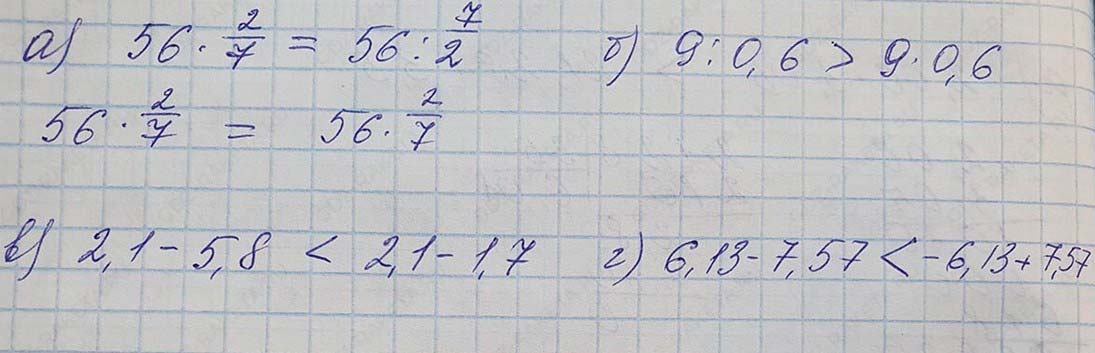 а) 56 · 2/7 = 56 : 7/2
б) 9 : 0,6 > 9 · 0,6
56 · 2/7 = 56 · 2/7
в) 2,1 - 5,8 < 2,1 - 1,7
г) 6,13 - 7,57 < -6,13 + 7,57